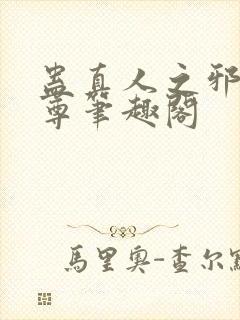 蛊真人之邪
尊笔趣阁
馬里奧-查尔